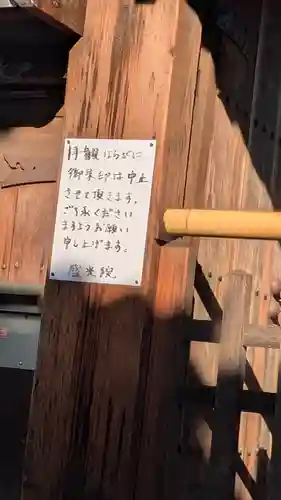 拝観ならびに
御朱印は中止
させて頂きます。
ご了承ください
ますようお願い
申し上げます。
盛光院